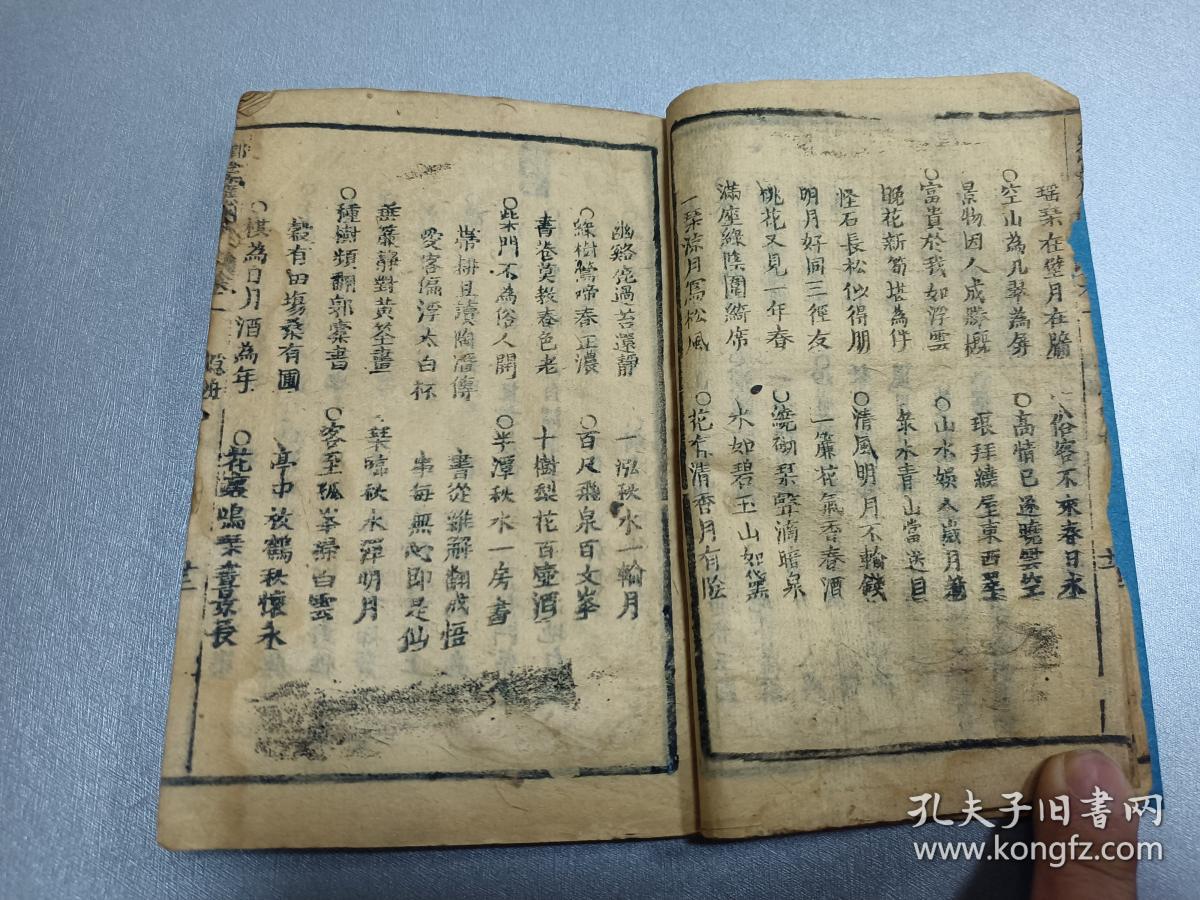 瑶琹在壁月在牖
俗客不來春日永
○空山為几翠為屏
○高情已逐曉雲空
景物因人成勝概
環拜繞屋東西翠
○富貴於我如浮雲
○山水娛人歲月
晚花新筍堪為伴
泉水青山當送目
怪石長松似得朋
○清風明月不輸錢
明月好同三徑友
一簾花氣香春酒
桃花又見一年春
○繞砌琹聲滴暗泉
滿座綠陰圍綺席
水如碧玉山如黛
一琹涼月寫松風
○花有清香月有陰
幽谿
過苔還靜
一泓秋水一輪月
○綠樹鶯啼春正濃
○百尺飛泉百丈峯
書卷莫教春色老
十樹梨花百壺酒
○柴門不為俗人開
○半潭秋水一房書
常耕且讀陶潛傳
書從難解翻成悟
愛客偏浮太白杯
事每無心即是仙
垂簾靜對黃荃畫
琹
秋水彈明月
○種樹頻翻郭橐書
○客至孤峯掃白雲
穀有田場桑有圃
亭中放鶴秋懷永
○棋為日月酒為年
○花裏鳴琹晝景長
孔夫子旧書网
www.kongfz.com